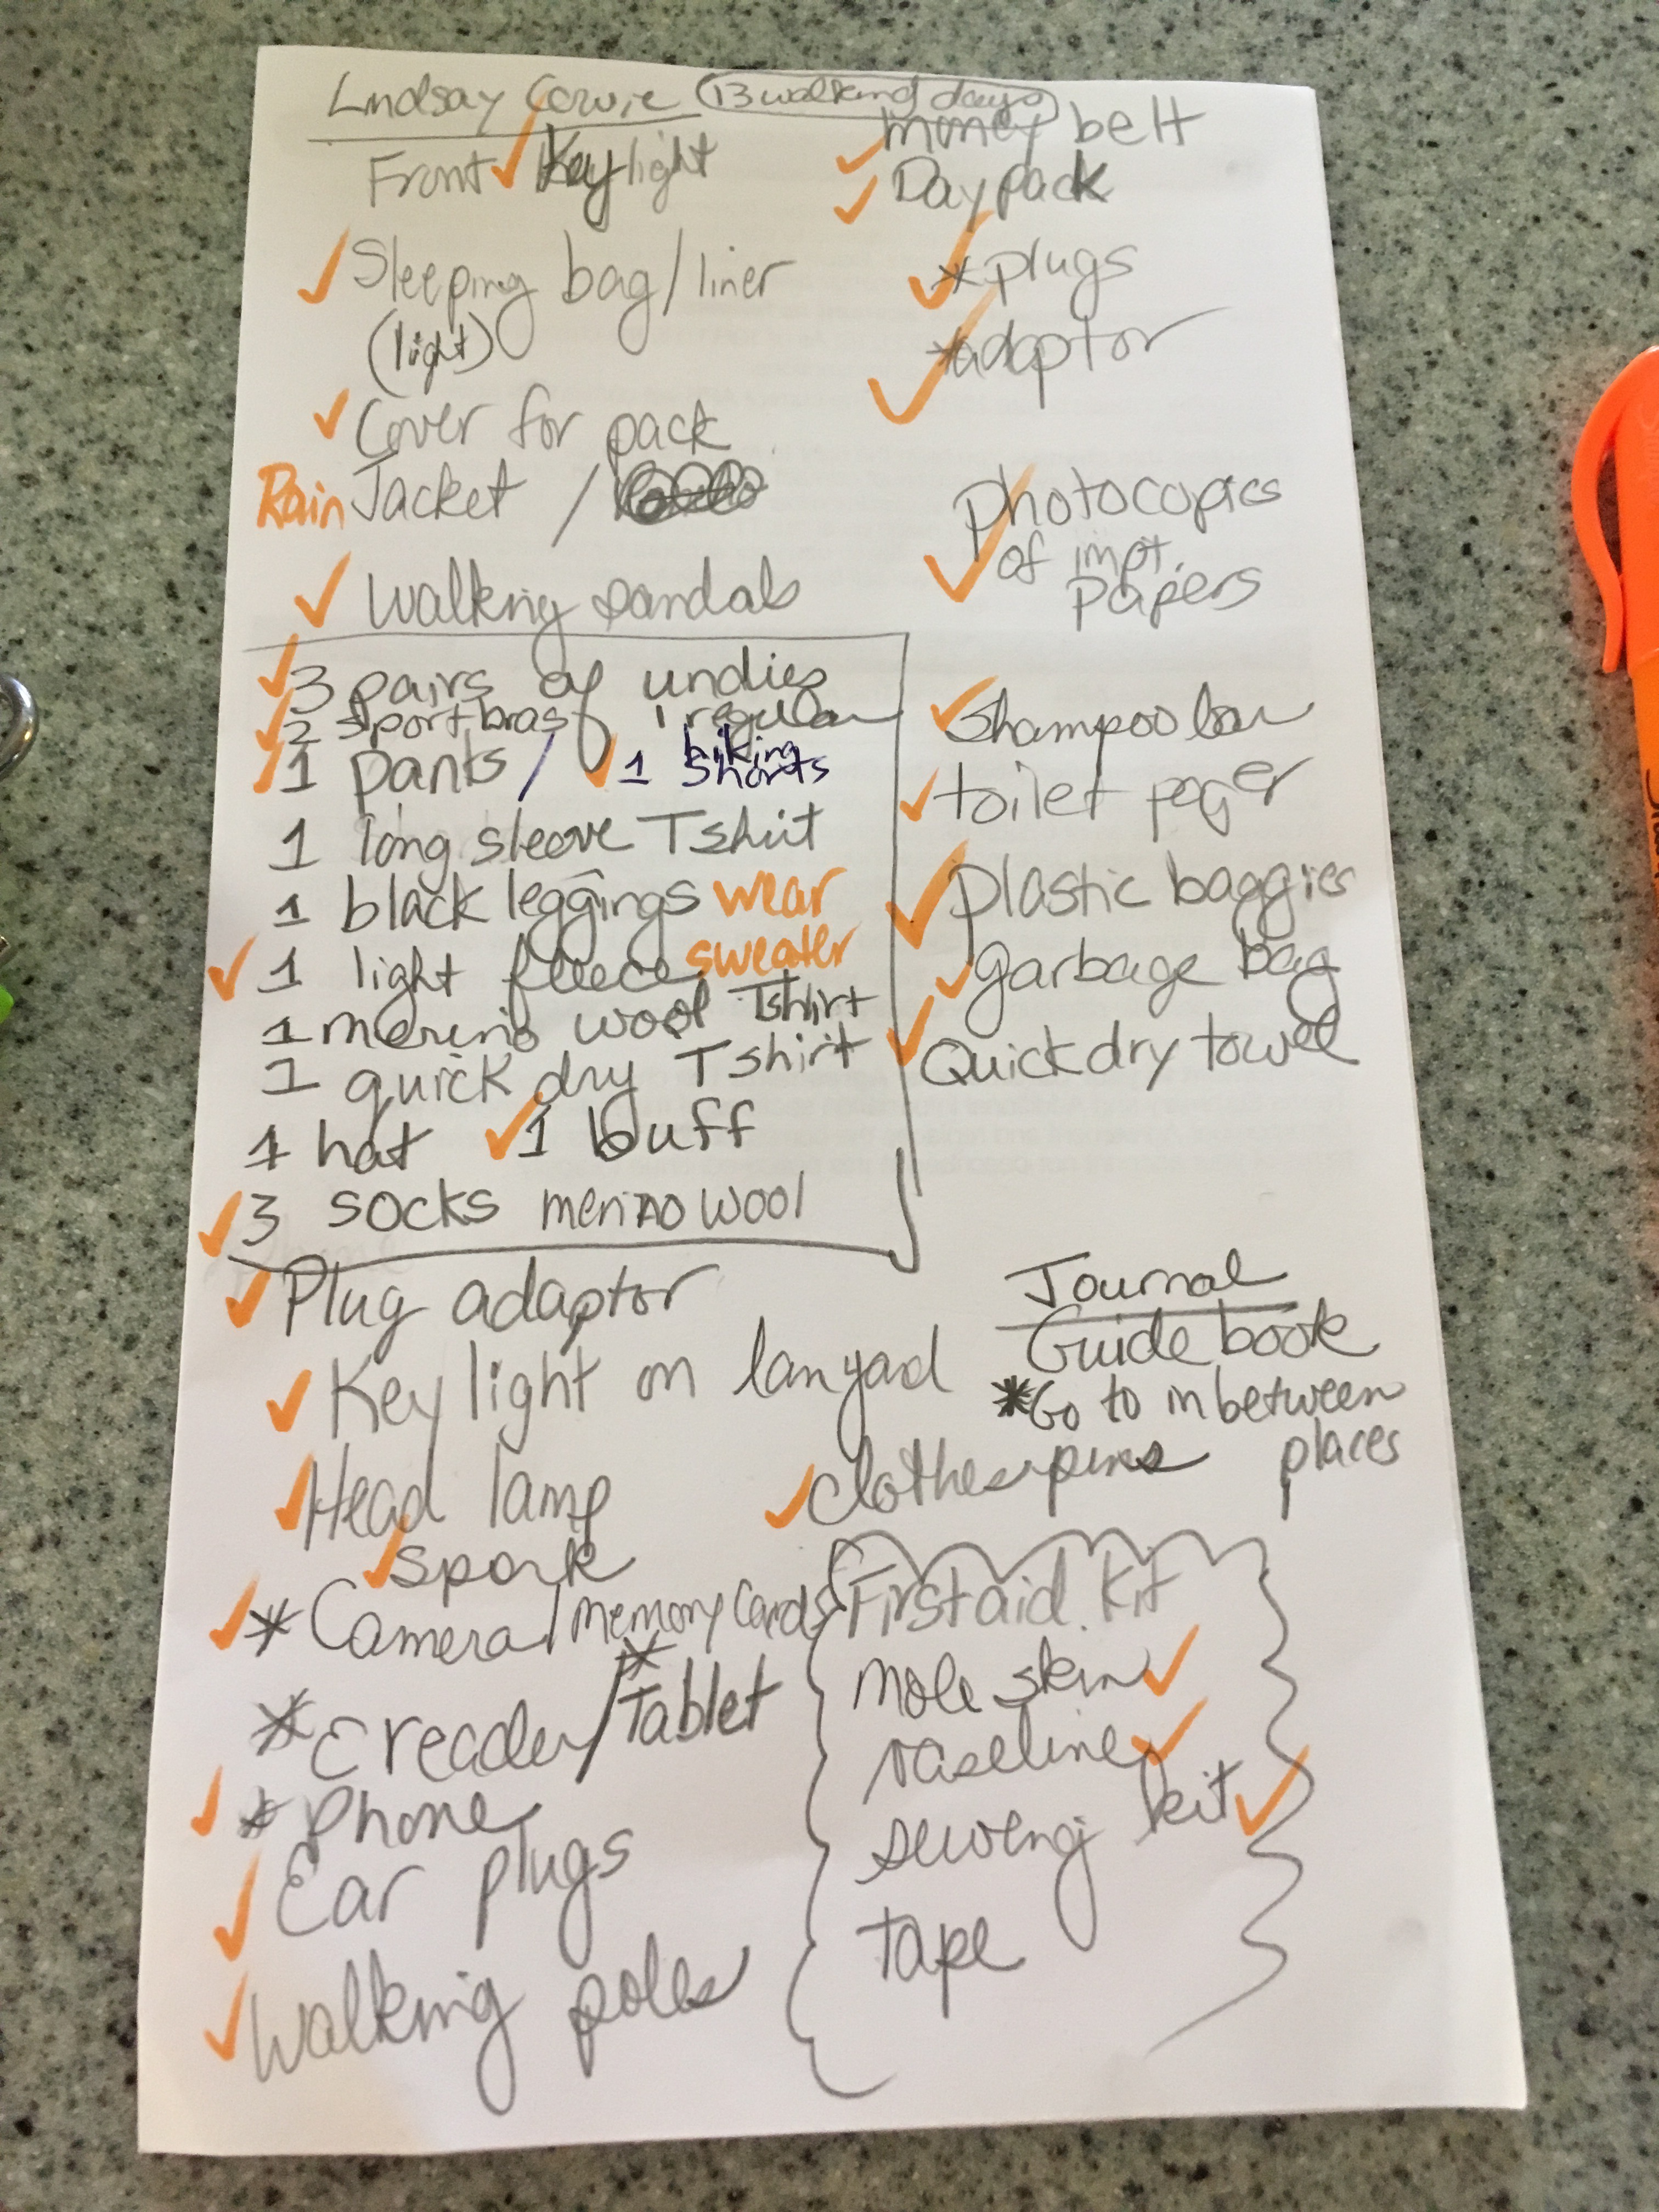 Lindsay Cowie 13 walking days
Front Key light
Sleeping bag/liner
(light)
Cover for pack
Rain Jacket /
Walking sandals
3 pairs of undies
2 sport bras 1 regular
1 pants / 1 biking shorts
1 long sleeve Tshirt
1 black leggings wear
1 light fleece sweater
1 merino wool Tshirt
1 quick dry Tshirt
1 hat 1 buff
3 socks merino wool
Plug adaptor
Key light on lanyad
Head lamp
spork
* Camera / memory cards
* E reader / * Tablet
* Phone
Ear plugs
Walking poles
money belt
Day pack
* plugs
* adaptor
Photocopies
of impt.
papers
Shampoo bar
toilet paper
Plastic baggies
garbage bag
Quick dry towel
Journal
Guide book
* Go to in between
places
Clothes pins
First aid kit
mole skin
vaseline
sewing kit
tape